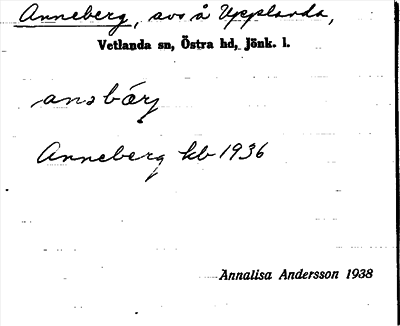 Anneberg, avs å Upplanda,
Vetlanda sn, Östra hd, Jönk. l.
anəbärj
Anneberg kb 1936
Annalisa Andersson 1938